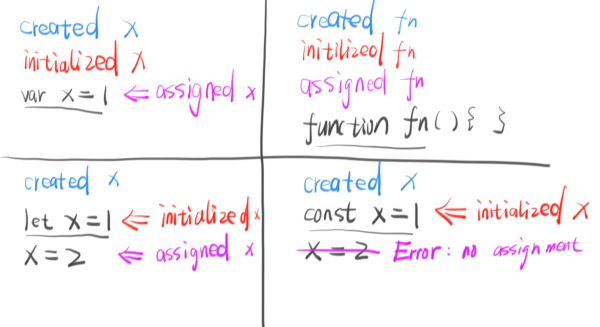 created x
initialized x
var x=1 ⇐ assigned x
created fn
initilized fn
assigned fn
function fn(){ }
created x
let x=1 ⇐ initialized x
x=2 ⇐ assigned x
created x
const x=1 ⇐ initialized x
x=2 Error: no assignment